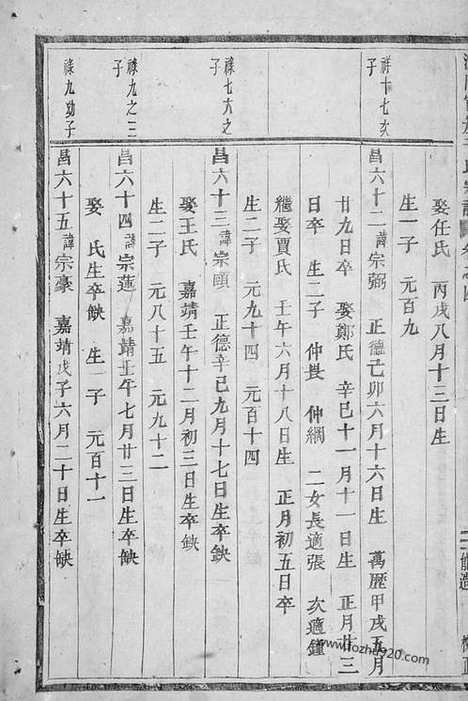 娶任氏 丙戌八月十三日生
生一子 元百九
祥十七次子
昌六十二 諱宗弼 正德己卯六月十六日生 萬歷甲戌五月
廿九日卒 娶鄭氏 辛巳十一月十一日生 正月廿三
日卒 生二子 仲 仲綱 二女長適張 次適鍾
繼娶賈氏 壬午六月十八日生 正月初五日卒
生二子 元九十四 元百十四
祿七六之子
昌六十三 諱宗頤 正德辛巳九月十七日生卒缺
娶王氏 嘉靖壬午十二月初三日生卒缺
生二子 元八十五 元九十二
祿九之二子
昌六十四 諱宗蓮 嘉靖壬午七月廿三日生卒缺
娶 氏生卒缺 生一子 元百十一
祿九幼子
昌六十五 諱宗豪 嘉靖戊子六月二十日生卒缺
www.fozhu920.com